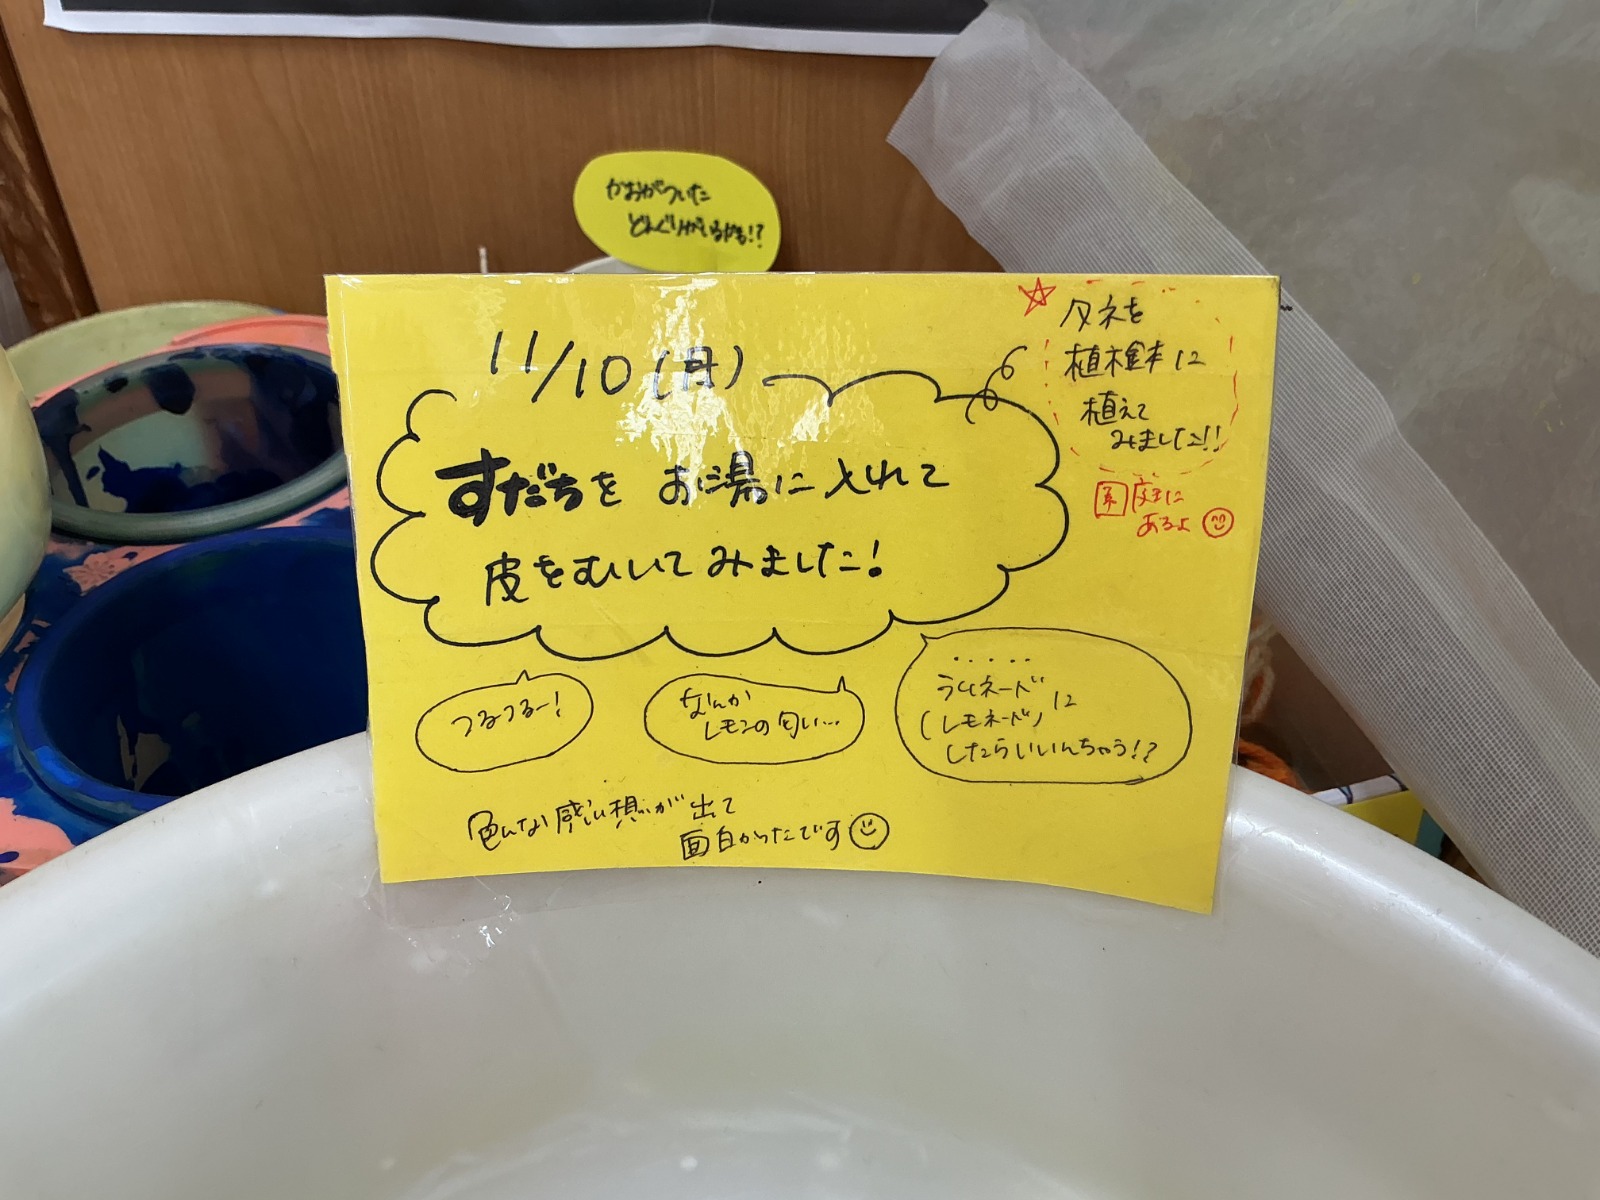 かおがついた
どんぐりがいるかも!?
11/10(月)
すだちを お湯に入れて
皮をむいてみました!
☆
タネを
植木鉢に
植えて
みました!!
園庭に
あるよ
つるつるー!
なんか
レモンの匂い…
.....
ラムネードに
(レモネード)
したらいいんちゃう!?
色んな感想が出て
面白かったです